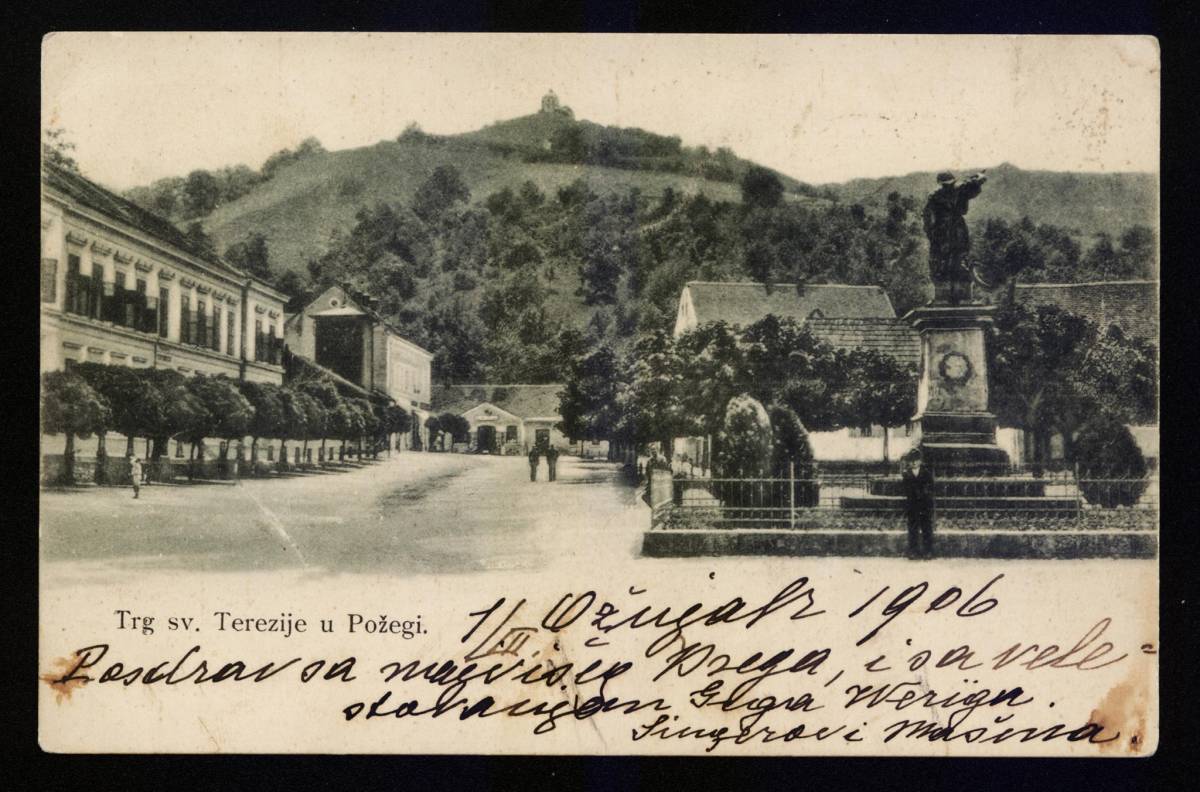 Trg sv. Terezije u Požegi.
1/III Ožujak 1906
Pozdrav sa najvišeg brega, i sa vele-
stovanjem Gega Weriga.
Singerovi Mašina.